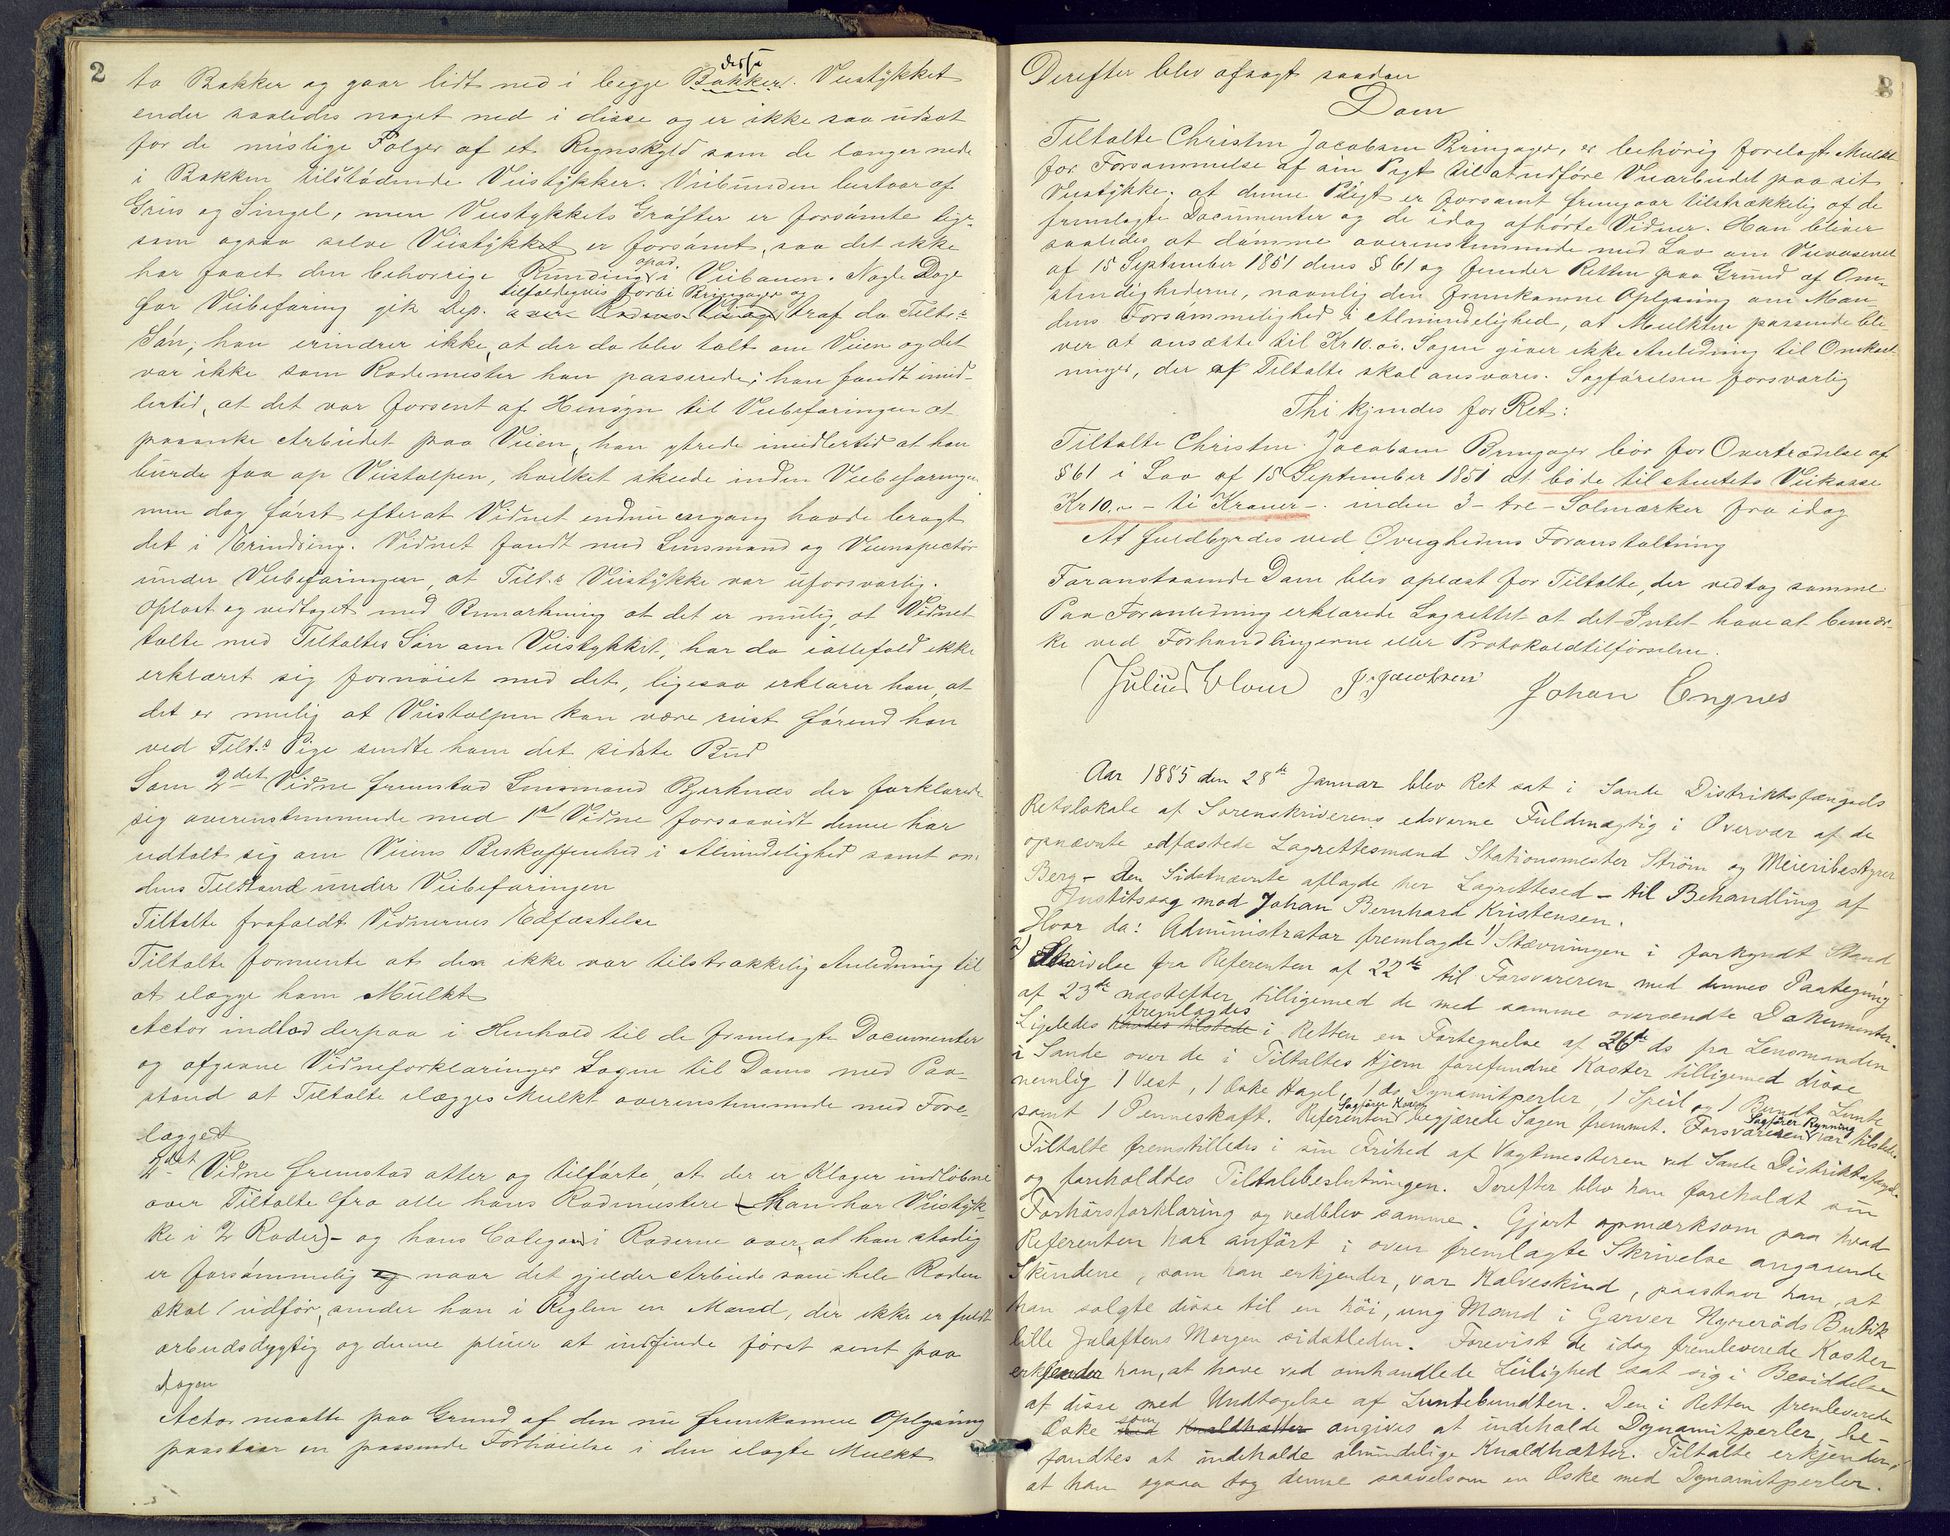 2
to Bakker og gaar lidt ned i begge disse Bakker. Veistykket
ender saaledes noget ned i disse og er ikke saa udsat
for de mislige Følger af et Regnskyld som de længer nede
i Bakken tilstødende Veistykker. Veibunden bestaar af
Grus og Singel, men Veistykkets Grøfter er forsømte lige-
som ogsaa selve Veistykket er forsømt, saa det ikke
har faaet den behørige Runding opad i Veibanen. Nogle Dage
før Veibefaring gik Dep. tilfældigvis forbi Bringager og traf da Tilts
Søn; han erindrer ikke, at der da blev talt om Veien og det
var ikke som Rodemester han passerede; han fandt imid-
lertid, at det var forsent af Hensyn til Veibefaringen at
paaanke Arbeidet paa Veien, han ytrede imidlertid at han
burde faa op Veistolpen, hvilket skeede inden Veibefaringen
men dog først efterat Vidnet endnu engang havde bragt
det i Erindring. Vidnet fandt med Lensmand og Veiinspectør
under Veibefaringen, at Tilt.s Veistykke var uforsvarlig.
Oplæst og vedtaget med Bemærkning at det er mulig, at Vidnet
talte med Tiltaltes Søn om Veistykket, har da iallefald ikke
erklæret sig fornøiet med det, ligesaa erklærer han, at
det er mulig at Veistolpen kan være reist førend han
ved Tilt.s Pige sendte ham det sidste Bud
Som 2det Vidne fremstod Lensmand Bjerknæs der forklarede
sig overensstemmende med 1ste Vidne forsaavidt denne har
udtalt sig om Veiens Beskaffenhed i Almindelighed samt om
dens Tilstand under Veibefaringen
Tiltalte frafaldt Vidnernes Edfæstelse
Tiltalte formente at der ikke var tilstrækkelig Anledning til
at ilægge ham Mulkt
Actor indlod derpaa i Henhold til de fremlagte Documenter
og afgivne Vidneforklaringer Sagen til Doms med Paa-
stand at Tiltalte ilægges Mulkt overensstemmende med Fore-
lægget
Vidne fremstod atter og tilførte, at der er Klager indløbne
over Tiltalte fra alle hans Rodmestere (Man har Veistyk-
ke i 2 Roder) - og hans Colegaer i Roderne over, at han stadig
er forsømmelig naar det gjelder Arbeide som hele Roden
skal udføre, sender han i Reglen en Mand, der ikke er fuldt
arbeidsdygtig og denne pleier at indfinde først sent paa
Dagen
Actor maatte paa Grund af den nu fremkomne Oplysning
paastaa en passende Forhøielse i den ilagte Mulkt
3
Derefter blev afsagt saadan
Dom
Tiltalte Christen Jacobsen Bringager, er behørig forelagt Mulkt
for Forsømmelse af sin Pligt til at udføre Veiarbeidet paa sit
Veistykke; at denne Pligt er forsømt fremgaar tilstrækkelig af de
fremlagte Documenter og de idag afhørte Vidner. Han bliver
saaledes at dømme overensstemmende med Lov om Veivæsenet
af 15 September 1851 dens § 61 og finder Retten paa Grund af Om-
stændighederne, navnlig den fremkomne Oplysning om Man-
dens Forsømmelighed i Almindelighed, at Mulkten passende bli-
ver at ansætte til Kr 10.00. Sagen giver ikke Anledning til Omkost-
ninger, der af Tiltalte skal ansvares. Sagførelsen forsvarlig
Thi kjendes for Ret:
Tiltalte Christen Jacobsen Bringager bør for Overtrædelse af
§ 61 i Lov af 15 September 1851 at bøde til Amtets Veikasse
Kr 10.- - ti Kroner -. inden 3 - tre - Solmærker fra idag
At fuldbyrdes ved Øvrighedens Foranstaltning
Foranstaaende Dom blev oplæst for Tiltalte, der vedtog samme
Paa Foranledning erklærede Lagrettet at det Intet have at bemær-
ke ved Forhandlingerne eller Protokoldtilførselen.
Julius Blom J. Jacobsen Johan Engnes
Aar 1885 den 28de Januar blev Ret sat i Sande Distriktsfængsels
Retslokale af Sorenskriverens edsvorne Fuldmægtig i Overvær af de
opnævnte edfæstede Lagrettesmænd Stationsmester Strøm og Meieribestyrer
Berg - Den Sidstnævnte aflagde her Lagrettesed - til Behandling af
Justitssag mod Johan Bernhard Kristensen.
Hvor da: Administrator fremlagde 1) Stævningen i forkyndt Stand
2) Skrivelse fra Referenten af 22de til Forsvareren med dennes Paategning
af 23de næstefter tilligemed de med samme oversendte Dokumenter.
Ligeledes fremlagdes havdes tilstede i Retten en Fortegnelse af 26de ds fra Lensmanden
i Sande over de i Tiltaltes Hjem forefundne Koster tilligemed disse
nemlig 1 Vest, 1 Æske Hagel, 1 do Dynamitperler, 1 Speil og 1 Bundt Lunte
samt 1 Penneskaft. Referenten Sagfører Kvam begjærede Sagen fremmet. Forsvareren Sagfører Rynning var tilstede.
Tiltalte fremstilledes i sin Frihed af Vagtmesteren ved Sande Distriktsfængsel
og foreholdtes Tiltalebeslutningen. Derefter blev han foreholdt sin
Forhørsforklaring og vedblev samme. Gjort opmærksom paa hvad
Referenten har anført i oven fremlagte Skrivelse angaaende
Skindene, som han erkjender, var Kalveskind, paastaar han, at
han solgte disse til en høi, ung Mand i Garver Hyrerøds Butik
lille Julaftens Morgen sidstleden. Forevist de idag fremleverede Koster
erkjender han, at have ved omhandlede Leilighed sat sig i Besiddelse
af disse med Undtagelse af Luntebundten. Den i Retten fremleverede
Æske som Knaldhætter angives at indeholde Dynamitperler, be-
fandtes at indeholde almindelige Knaldhætter. Tiltalte erkjender,
at han ogsaa tog denne saavelsom en Æske med Dynamitperler.